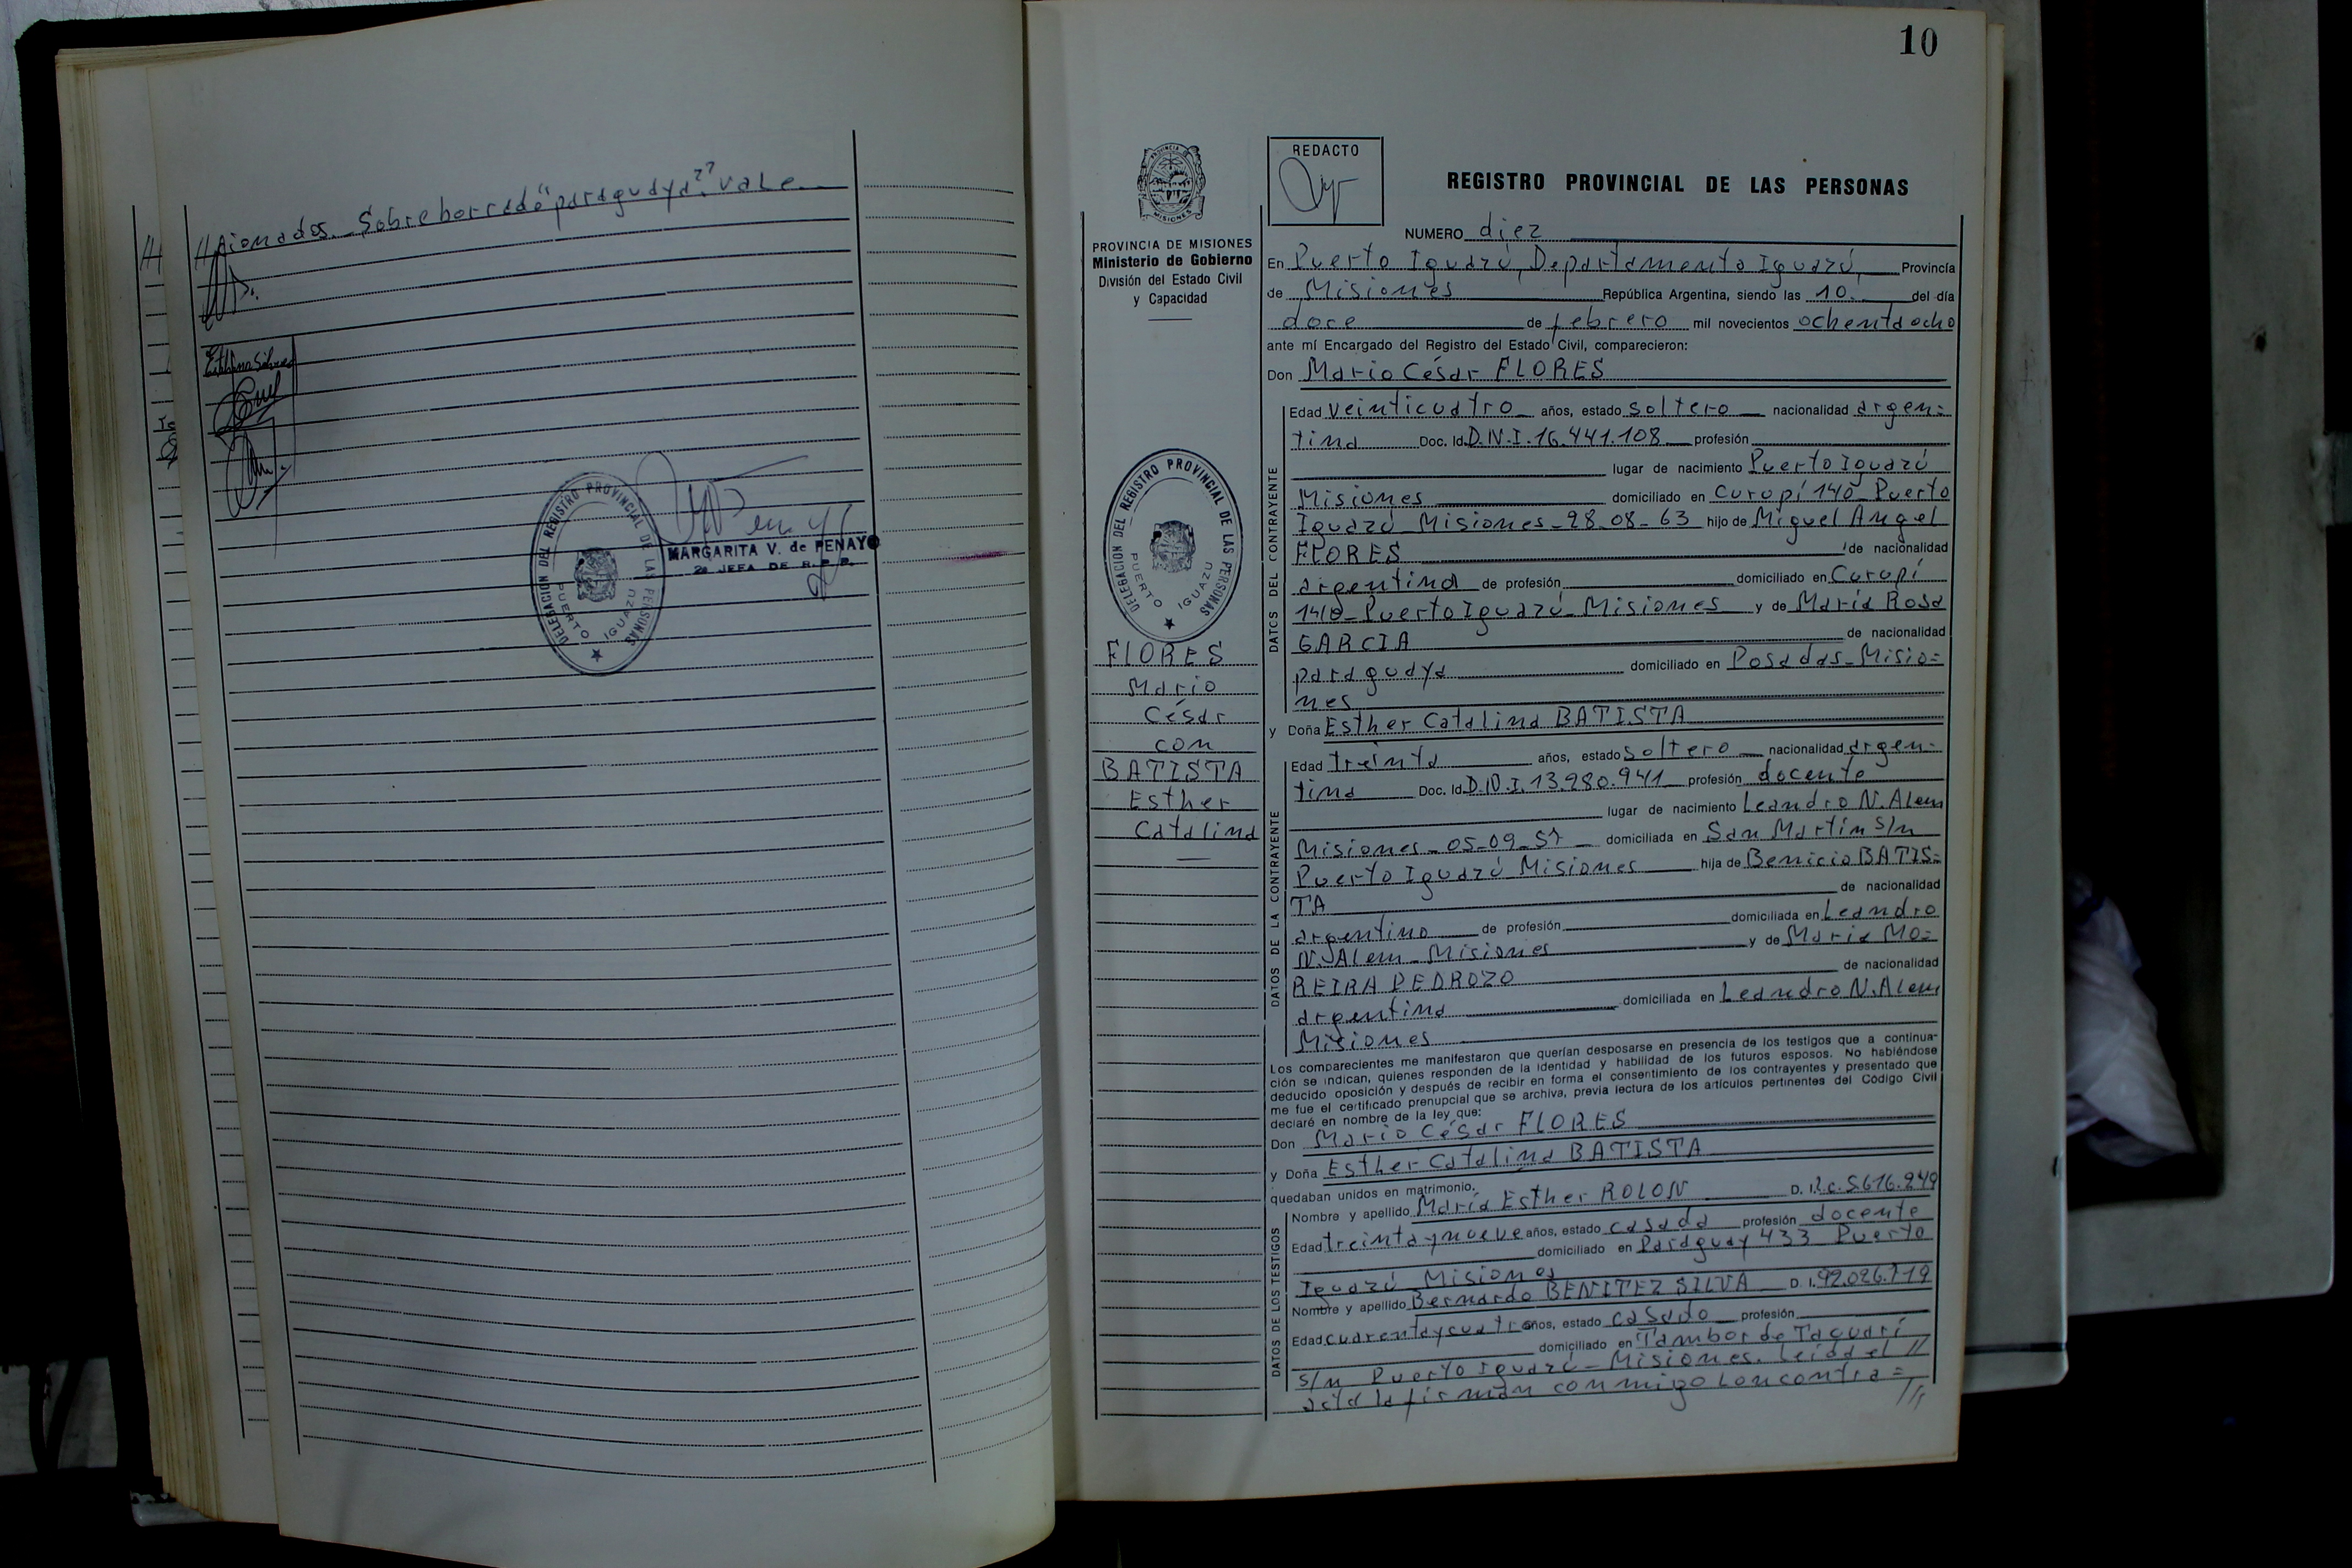 //cionados._ Sobreborrado "paraguaya": vale._
DELEGACION DEL REGISTRO PROVINCIAL DE LAS PERSONAS
PUERTO IGUAZU
MARGARITA V. de PENAYO
2a JEFA DE R. P. P.
10
PROVINCIA DE MISIONES
Ministerio de Gobierno
División del Estado Civil
y Capacidad
DELEGACION DEL REGISTRO PROVINCIAL DE LAS PERSONAS
PUERTO IGUAZU
FLORES
Mario
César
con
BATISTA
Esther
Catalina
REDACTO
REGISTRO PROVINCIAL DE LAS PERSONAS
NUMERO diez
En Puerto Iguazú, Departamento Iguazú, Provincia
de Misiones República Argentina, siendo las 10. del día
doce de febrero mil novecientos ochentaocho
ante mí Encargado del Registro del Estado Civil, comparecieron:
Don Mario César FLORES
DATOS DEL CONTRAYENTE
Edad veinticuatro años, estado soltero nacionalidad argen=
tina Doc. Id. D.N.I. 16.441.108 profesión
lugar de nacimiento Puerto Iguazú
Misiones domiciliado en Curupí 140_ Puerto
Iguazú_ Misiones_ 28_08_63 hijo de Miguel Angel
FLORES de nacionalidad
argentina de profesión domiciliado en Curupí
140_ Puerto Iguazú_ Misiones y de María Rosa
GARCIA de nacionalidad
paraguaya domiciliado en Posadas_Misio=
nes
y Doña Esther Catalina BATISTA
DATOS DE LA CONTRAYENTE
Edad treinta años, estado soltero nacionalidad argen=
tina Doc. Id. D.N.I. 13.980.941 profesión docente
lugar de nacimiento Leandro N. Alem
Misiones_ 05_09_57 domiciliada en San Martín s/n
Puerto Iguazú Misiones hija de Benicio BATIS=
TA de nacionalidad
argentino de profesión domiciliada en Leandro
N. Alem_ Misiones y de María MO=
REIRA PEDROZO de nacionalidad
argentina domiciliada en Leandro N. Alem
Misiones
Los comparecientes me manifestaron que querían desposarse en presencia de los testigos que a continua-
ción se indican, quienes responden de la identidad y habilidad de los futuros esposos. No habiéndose
deducido oposición y después de recibir en forma el consentimiento de los contrayentes y presentado que
me fue el certificado prenupcial que se archiva, previa lectura de los artículos pertinentes del Código Civil
declaré en nombre de la ley que:
Don Mario César FLORES
y Doña Esther Catalina BATISTA
quedaban unidos en matrimonio.
DATOS DE LOS TESTIGOS
Nombre y apellido María Esther ROLON D. I. L.C. 5.616.949
Edad treinta y nueve años, estado casada profesión docente
domiciliado en Paraguay 433 Puerto
Iguazú_ Misiones
Nombre y apellido Bernardo BENITEZ SILVA D. I. 92.026.719
Edad cuarenta y cuatro años, estado casado profesión
domiciliado en Tambor de Tacuarí
s/n Puerto Iguazú_ Misiones. Leída el //
acta la firman conmigo los contra=
//